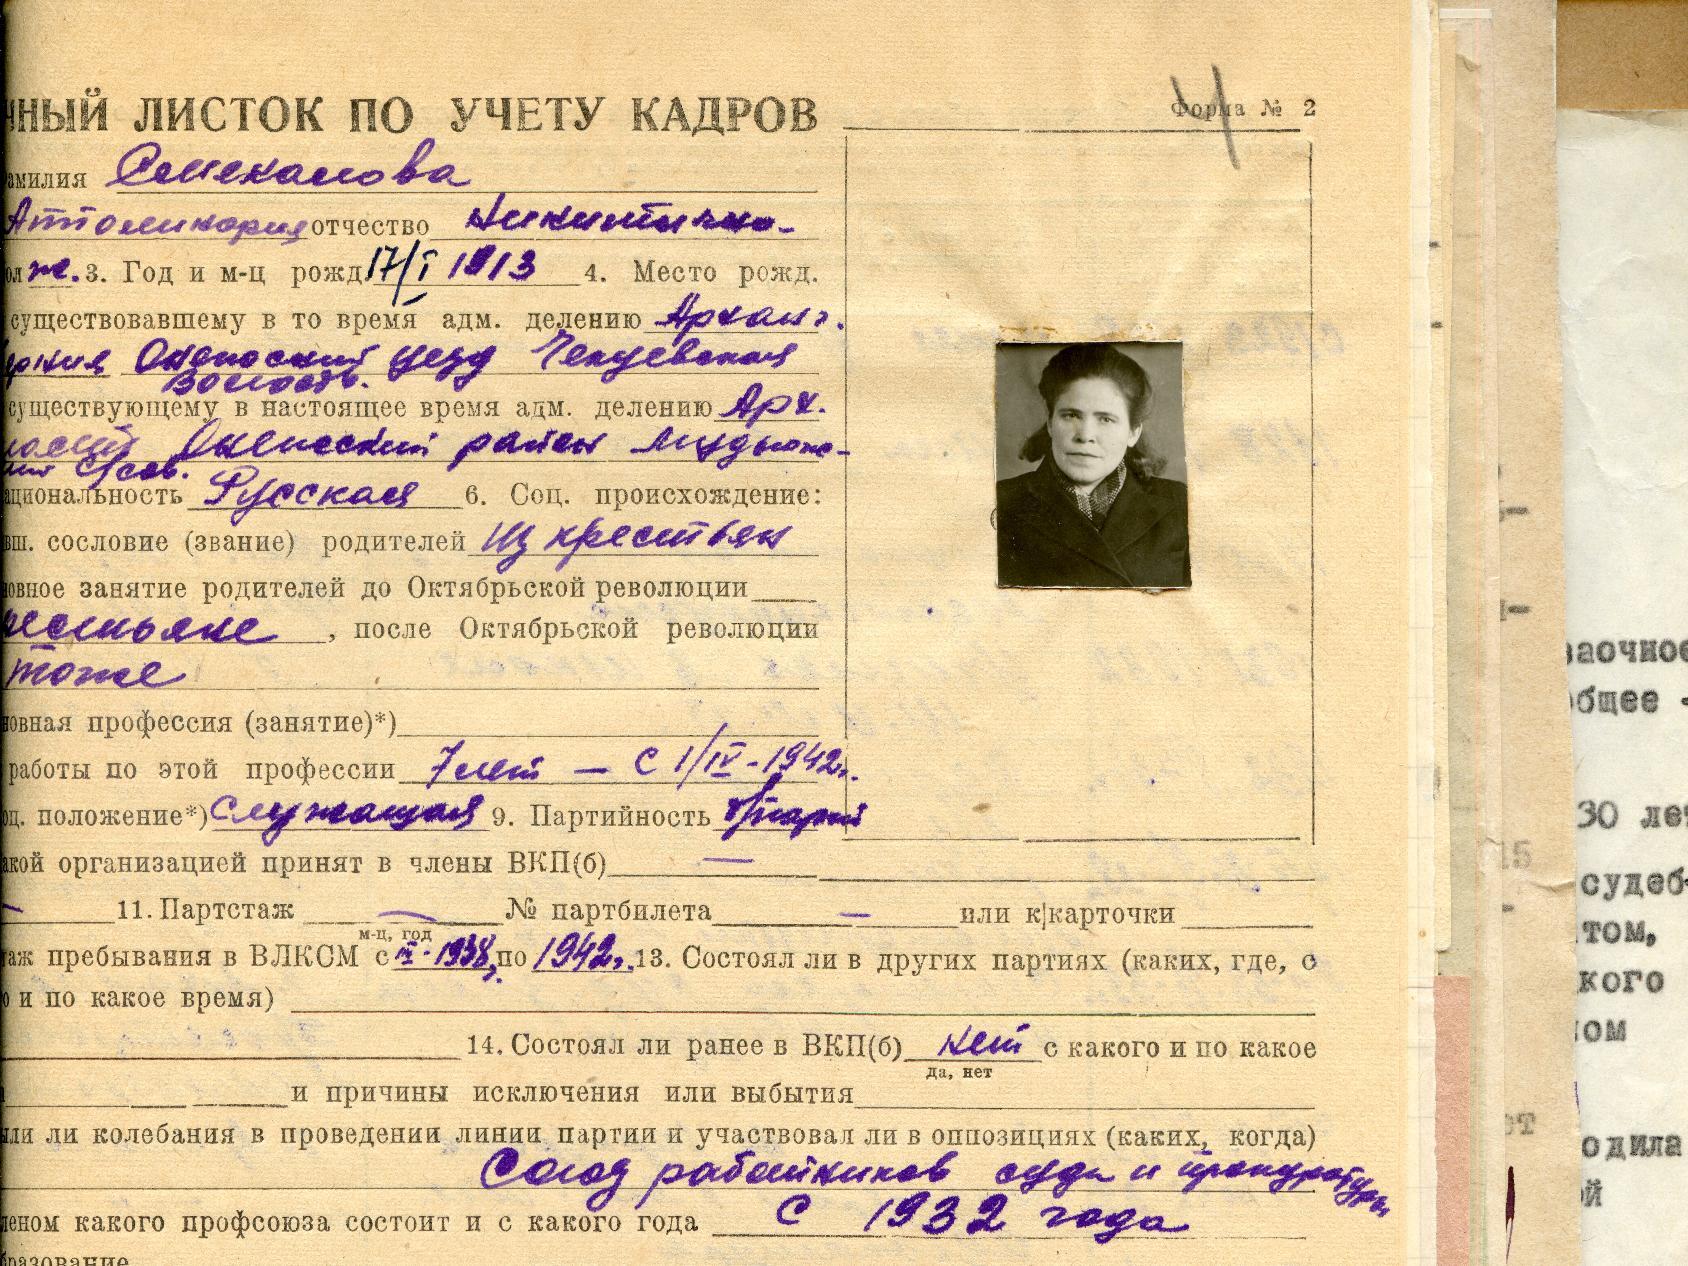 ЧНЫЙ ЛИСТОК ПО УЧЕТУ КАДРОВ
Форма № 2
4
амилия Семекалова
отчество Никитична
ол ж. 3. Год и м-ц рожд 17/I 1913 4. Место рожд.
существовавшему в то время адм. делению Арханг.
Онежский уезд Чекуевская
волость.
существующему в настоящее время адм. делению Арх.
Онежский район
ациональность Русская 6. Соц. происхождение:
вш. сословие (звание) родителей Из крестьян
новное занятие родителей до Октябрьской революции
рестьяне, после Октябрьской революции
тоже
новная профессия (занятие)*)
работы по этой профессии 7 лет — с 1/IV-1942г.
оц. положение*) Служащая 9. Партийность б/парт
акой организацией принят в члены ВКП(б) —
— 11. Партстаж — № партбилета — или к|карточки
м-ц, год
таж пребывания в ВЛКСМ с 1938 по 1942г. 13. Состоял ли в других партиях (каких, где, с
о и по какое время)
14. Состоял ли ранее в ВКП(б) нет с какого и по какое
да, нет
и причины исключения или выбытия
ыли ли колебания в проведении линии партии и участвовал ли в оппозициях (каких, когда)
Союз работников суда и прокуратуры
леном какого профсоюза состоит и с какого года с 1932 года
бразование
заочное
общее -
30 лет
15
судеб-
том,
кого
ном
ет
одила
ой